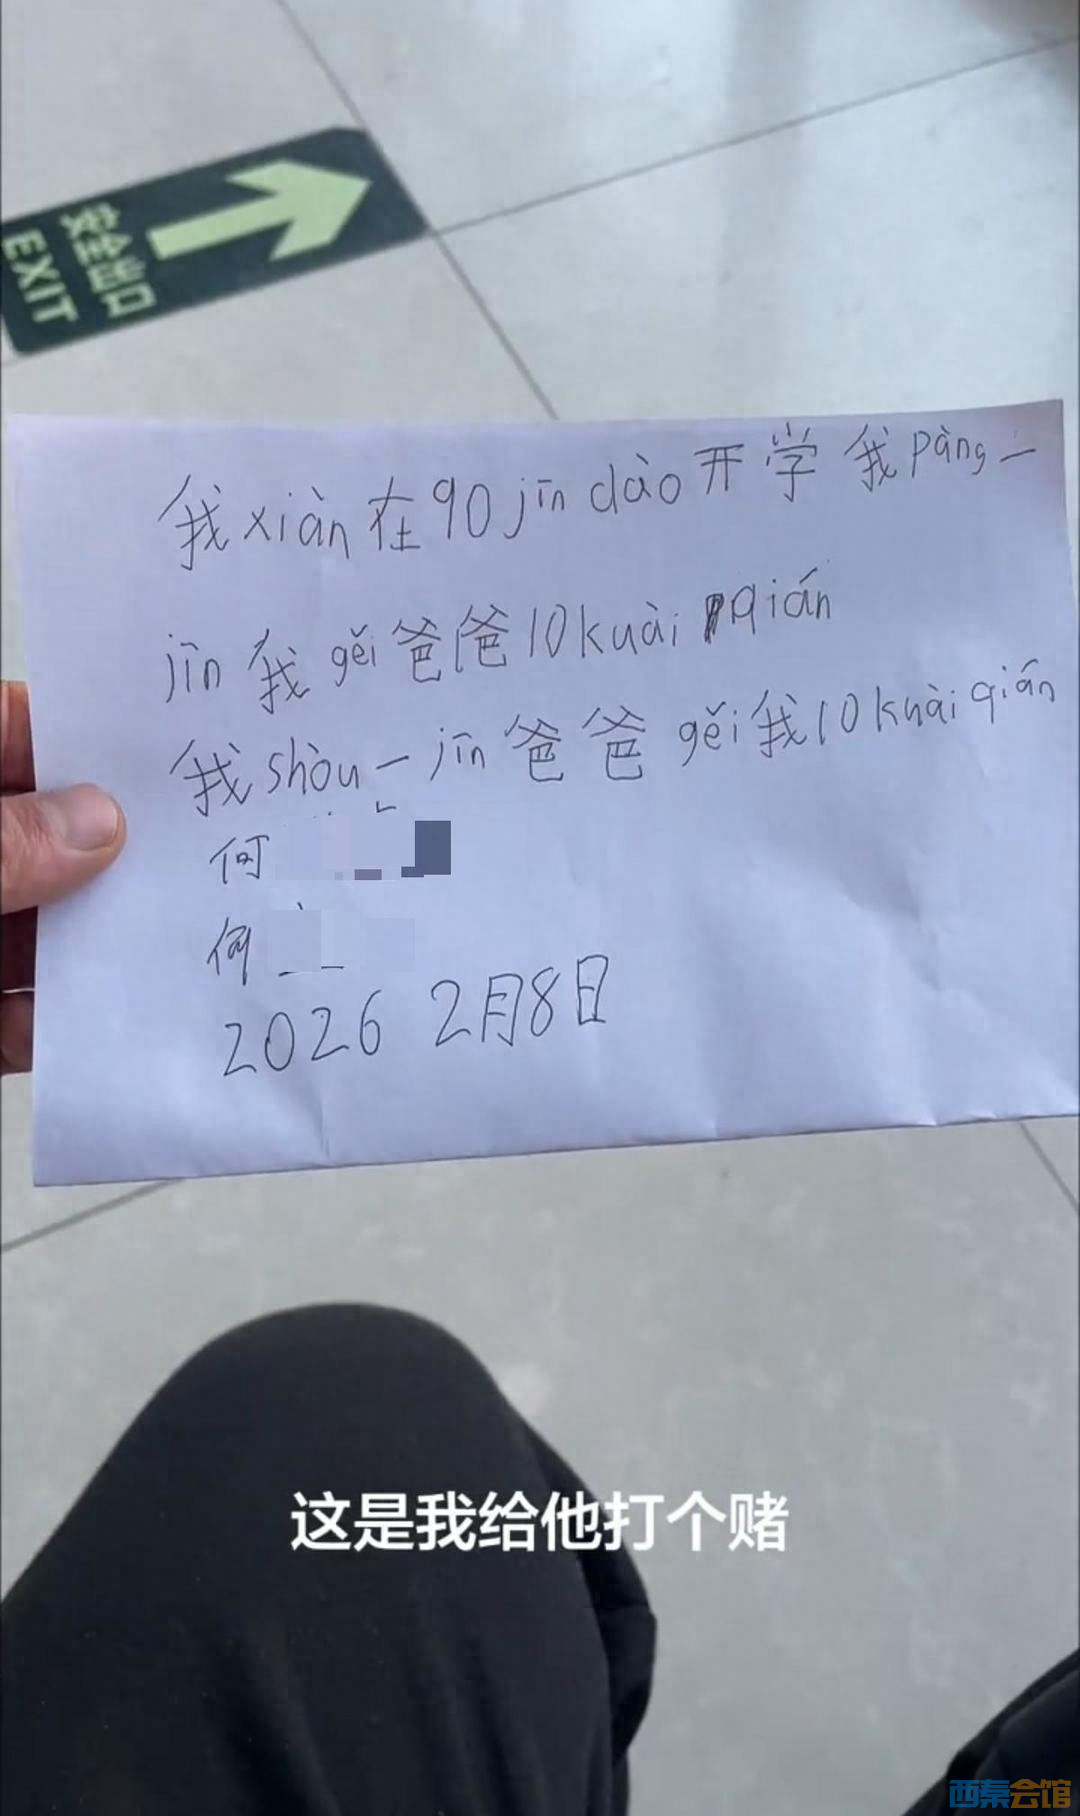 安全出口
EXIT
我xiàn在90jīn dào开学我pàng一
jīn我gěi爸爸10kuài qián
我shòu一jīn爸爸gěi我10kuài qián
何
何
2026 2月8日
这是我给他打个赌
西秦会馆